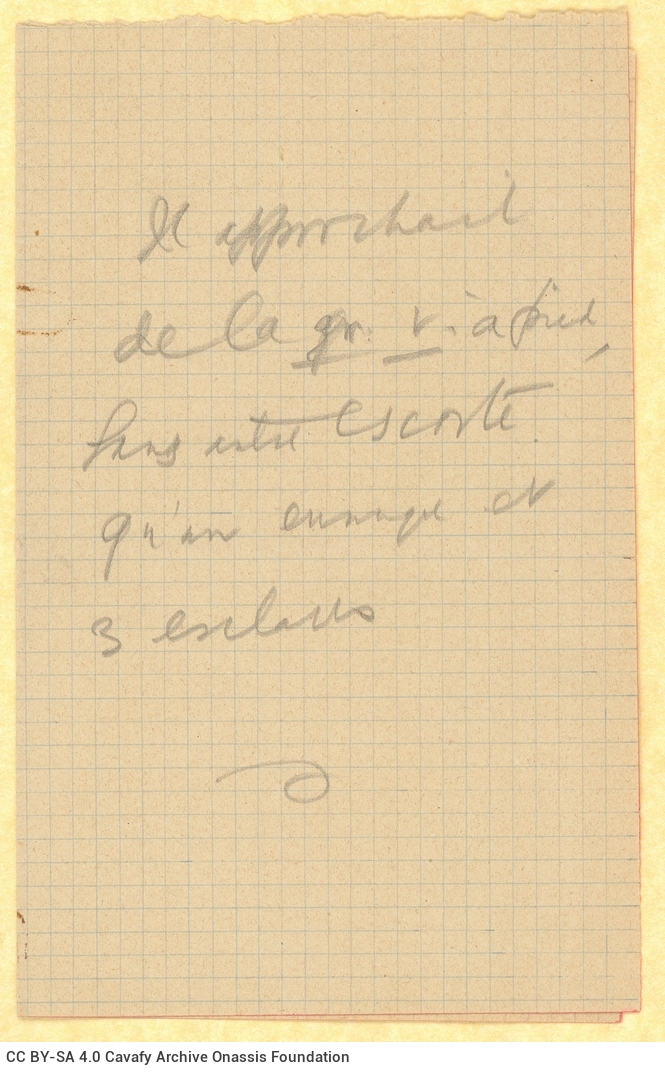 Il approchait
de la gr. v. à pied,
sans autre escorte
qu'un eunuque et
3 esclaves
CC BY-SA 4.0 Cavafy Archive Onassis Foundation